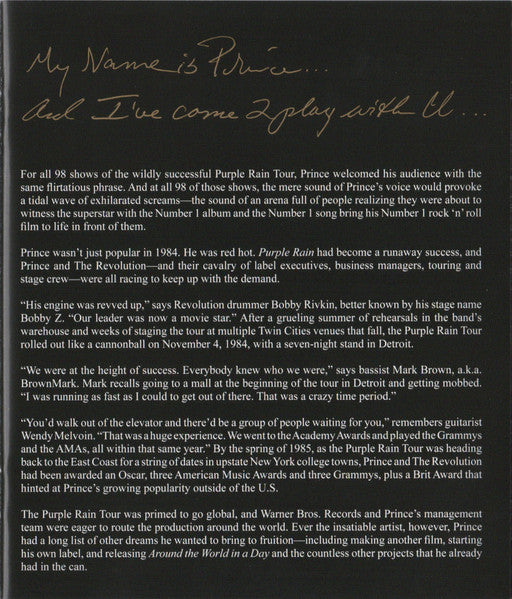 My Name is Prince...
And I've come 2 play with U...
For all 98 shows of the wildly successful Purple Rain Tour, Prince welcomed his audience with the
same flirtatious phrase. And at all 98 of those shows, the mere sound of Prince's voice would provoke
a tidal wave of exhilarated screams—the sound of an arena full of people realizing they were about to
witness the superstar with the Number 1 album and the Number 1 song bring his Number 1 rock 'n' roll
film to life in front of them.
Prince wasn't just popular in 1984. He was red hot. Purple Rain had become a runaway success, and
Prince and The Revolution—and their cavalry of label executives, business managers, touring and
stage crew—were all racing to keep up with the demand.
“His engine was revved up,” says Revolution drummer Bobby Rivkin, better known by his stage name
Bobby Z. “Our leader was now a movie star.” After a grueling summer of rehearsals in the band's
warehouse and weeks of staging the tour at multiple Twin Cities venues that fall, the Purple Rain Tour
rolled out like a cannonball on November 4, 1984, with a seven-night stand in Detroit.
“We were at the height of success. Everybody knew who we were,” says bassist Mark Brown, a.k.a.
BrownMark. Mark recalls going to a mall at the beginning of the tour in Detroit and getting mobbed.
“I was running as fast as I could to get out of there. That was a crazy time period.”
“You'd walk out of the elevator and there'd be a group of people waiting for you,” remembers guitarist
Wendy Melvoin. “That was a huge experience. We went to the Academy Awards and played the Grammys
and the AMAs, all within that same year.” By the spring of 1985, as the Purple Rain Tour was heading
back to the East Coast for a string of dates in upstate New York college towns, Prince and The Revolution
had been awarded an Oscar, three American Music Awards and three Grammys, plus a Brit Award that
hinted at Prince's growing popularity outside of the U.S.
The Purple Rain Tour was primed to go global, and Warner Bros. Records and Prince's management
team were eager to route the production around the world. Ever the insatiable artist, however, Prince
had a long list of other dreams he wanted to bring to fruition—including making another film, starting
his own label, and releasing Around the World in a Day and the countless other projects that he already
had in the can.